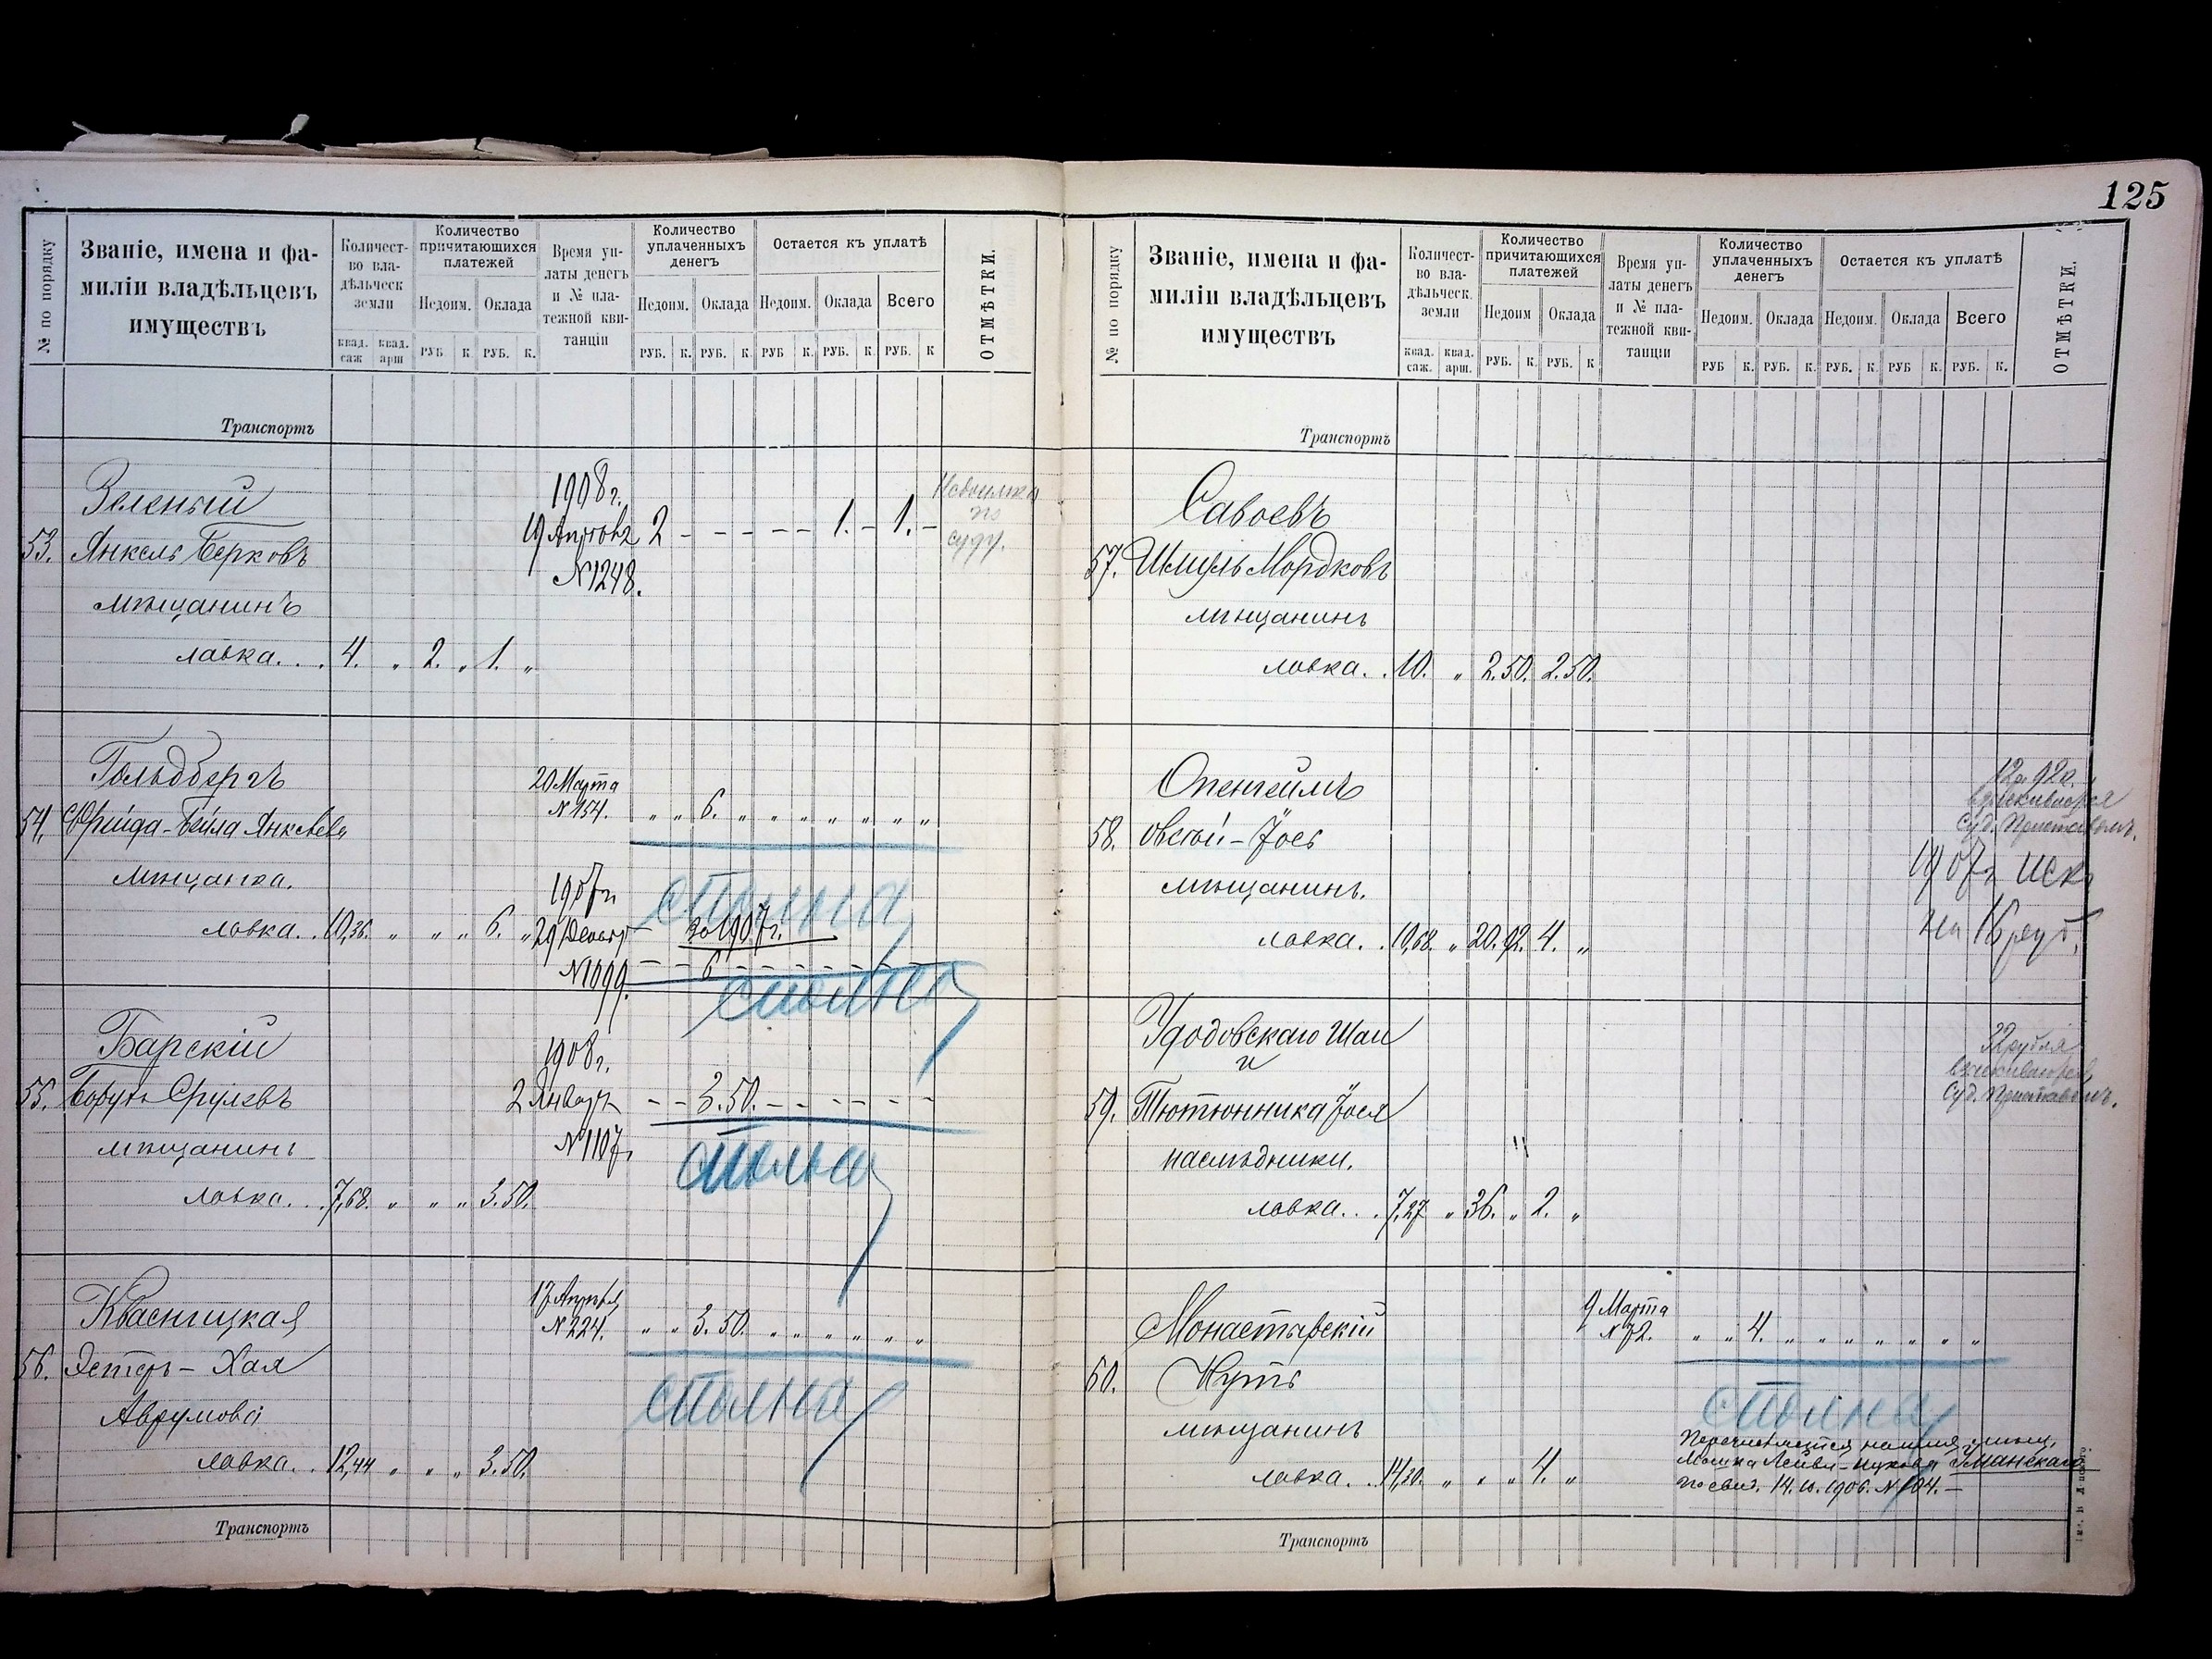 125
№ по порядку
Званіе, имена и фа-
миліи владѣльцевъ
имуществъ
Количест-
во вла-
дѣльческ
земли
квад. саж
квад. арш
Количество
причитающихся
платежей
Недоим. Оклада
РУБ К. РУБ. К.
Время уп-
латы денегъ
и № пла-
тежной кви-
танціи
Количество
уплаченныхъ
денегъ
Недоим. Оклада
РУБ. К. РУБ. К.
Остается къ уплатѣ
Недоим. Оклада Всего
РУБ К. РУБ. К. РУБ. К
ОТМѢТКИ.
Транспортъ
Зеленый
53. Янкель Берковъ
мѣщанинъ
лавка. . . 4. „ 2. „ 1. „
1908 г.
19
№ 1248.
2 - - - - - 1. - 1. -
Недоимка
по
суду.
Гольдбергъ
54. Фрейда-Бейла
мѣщанка.
лавка. . 10,36. „ „ „ 6. „
20 Марта
№ 154. „ „ 6. „ „ „ „ „ „ „
сполна
1907 г.
29 за 1907 г.
№ 1099. - - 6 - - - - - - -
сполна
Барскій
55. Борухъ Срулевъ
мѣщанинъ
лавка. . . 7,68. „ „ „ 3.50.
1908 г.
2 Января - - 3.50. - - - - - -
№ 1107
сполна
Квасницкая
56. Эстеръ - Хая
Аврумова
лавка. . 12,44 „ „ „ 3.50.
17 Апрѣля
№ 224. „ „ 3.50. „ „ „ „ „ „
сполна
Транспортъ
№ по порядку
Званіе, имена и фа-
миліи владѣльцевъ
имуществъ
Количест-
во вла-
дѣльческ.
земли
квад. саж.
квад. арш.
Количество
причитающихся
платежей
Недоим Оклада
РУБ. К. РУБ. К
Время уп-
латы денегъ
и № пла-
тежной кви-
танціи
Количество
уплаченныхъ
денегъ
Недоим. Оклада
РУБ К. РУБ. К.
Остается къ уплатѣ
Недоим. Оклада Всего
РУБ. К. РУБ К. РУБ. К.
ОТМѢТКИ.
Транспортъ
Савоевъ
57. Шмуль Мордковъ
мѣщанинъ
лавка. . 10. „ 2.50. 2.50.
Опенгеймъ
58. Овсей - Іосъ
мѣщанинъ.
лавка. . 10,68. „ 20.92. 4. „
12 р 92 к.
взыскивается
Суд. Приставомъ.
1907 г Иск
на 16 руб.
Удодовскаго Шаи
и
59. Тютюнника Іося
наслѣдники.
лавка. . . 7,27 „ 36. „ 2. „
32 рубля
взыскиваются
Суд. Приставомъ.
Монастырскій
60. Нутъ
мѣщанинъ
лавка. . 14,30. „ „ „ 4. „
9 Марта
№ 72. „ „ 4. „ „ „ „ „ „ „
сполна
Перечисляется на имя мѣщ.
Мошка Лейбы - Ицкова Уманскаго
14. 1906. № 104. -
Транспортъ